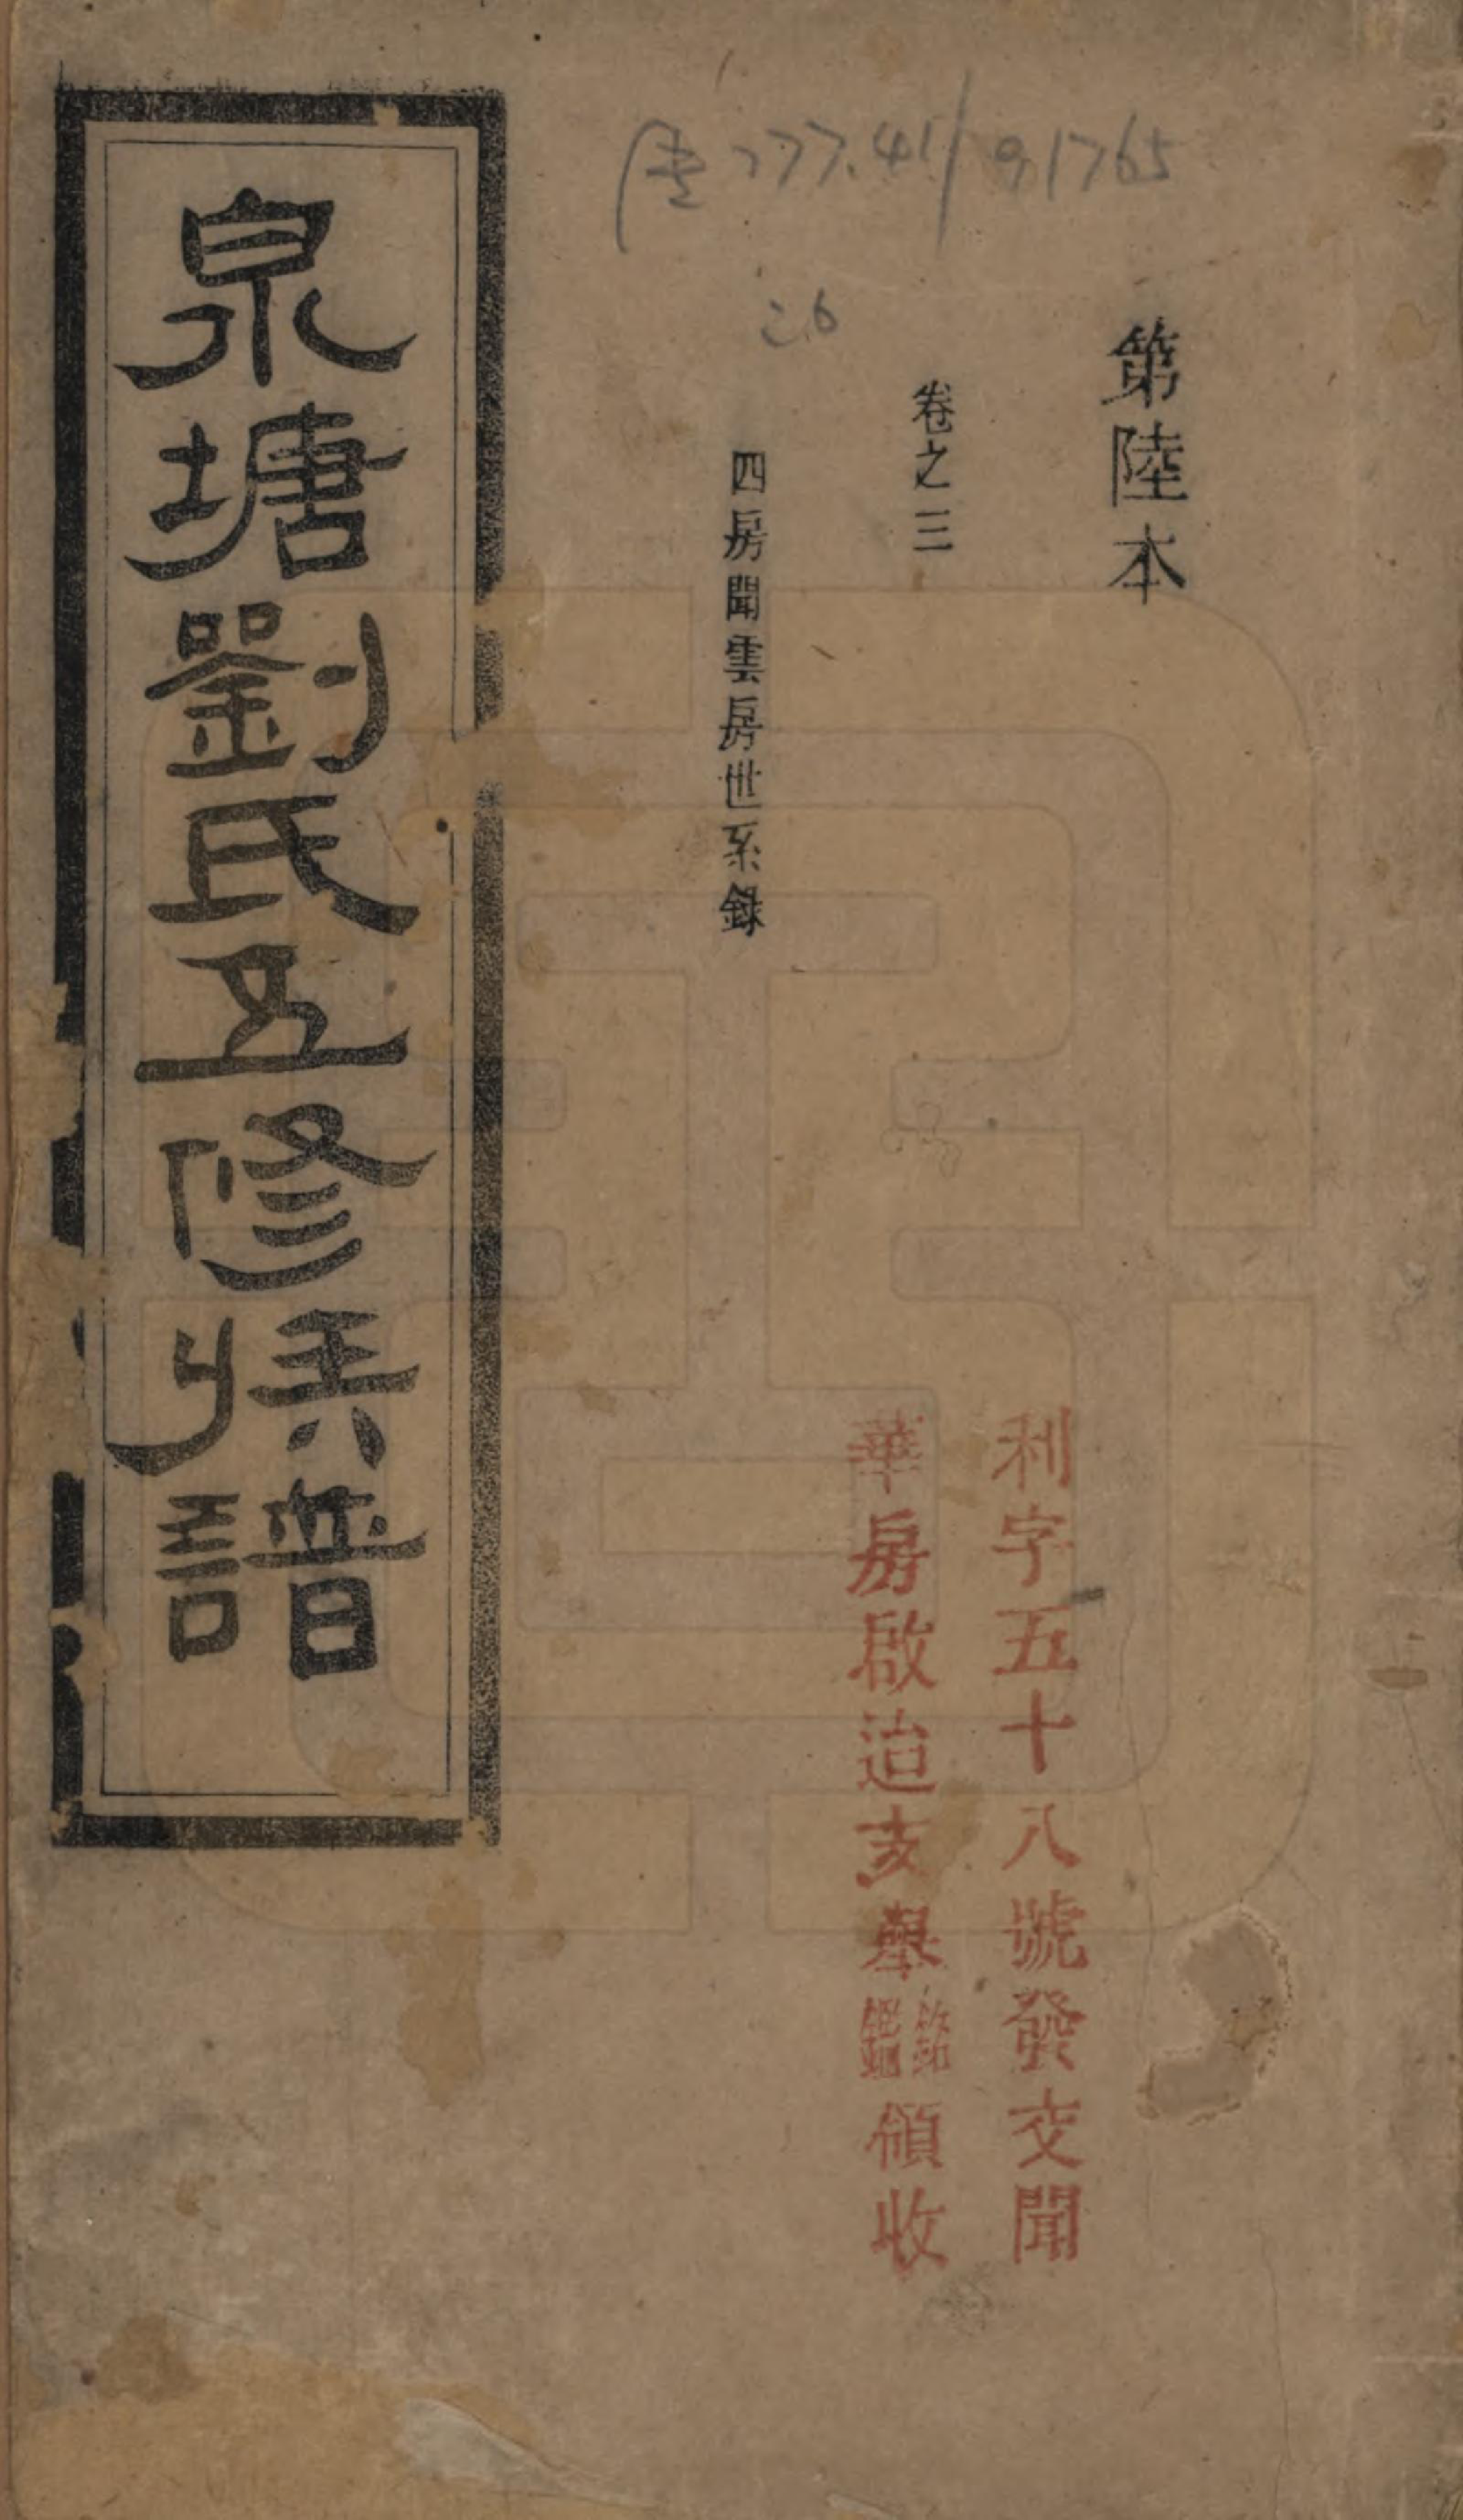 777.41/91765
26
第陸本
卷之三
四房聞雲房世系錄
利字五十八號發交聞
華房啟迨亥舉領收
泉塘劉氏五修族譜